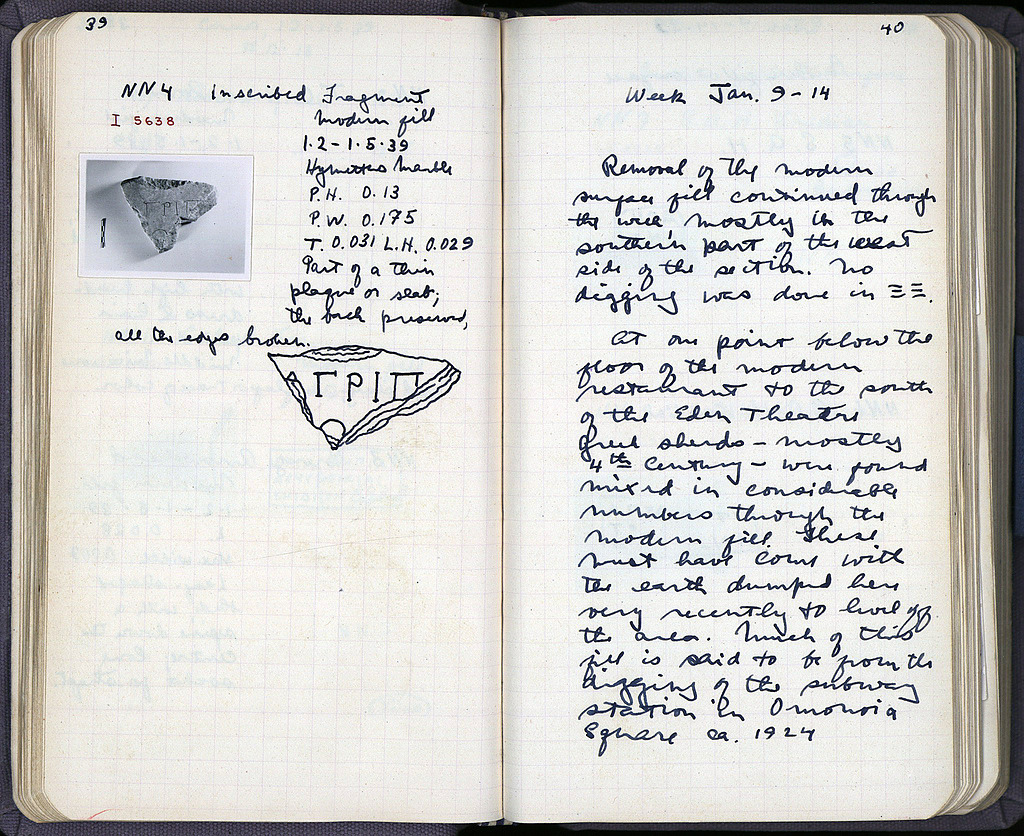 39
NN4 Inscribed Fragment
I 5638
modern fill
1.2-1.5.39
Hymettus marble
P.H. 0.13
P.W. 0.175
T. 0.031 L.H. 0.029
Part of a thin
plaque or slab;
the back preserved,
all the edges broken.
ΓΡΙΠ
40
Week Jan. 9-14
Removal of the modern
surface fill continued through
the week, mostly in the
southern part of the west
side of the section. No
digging was done in ΞΞ.
At one point below the
floor of the modern
restaurant to the south
of the Eden Theatre
Greek sherds – mostly
4th Century – were found
mixed in considerable
numbers through the
modern fill. These
must have come with
the earth dumped here
very recently to level off
the area. Much of this
fill is said to be from the
digging of the subway
station in Omonoia
Square ca. 1924